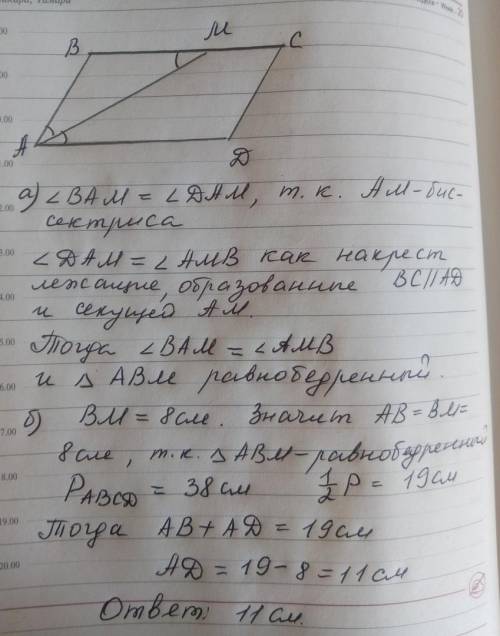 B M C
A D
а) ∠BAM = ∠DAM, т.к. AM-бис-
сектриса
∠DAM = ∠AMB как накрест
лежащие, образованные BC∥AD
и секущей AM.
Тогда ∠BAM = ∠AMB
и △ABM равнобедренный.
б) BM = 8см. Значит AB = BM =
8см, т.к. △ABM-равнобедренный
P_ABCD = 38 см ½P = 19 см
Тогда AB + AD = 19 см
AD = 19 - 8 = 11 см
Ответ: 11 см.